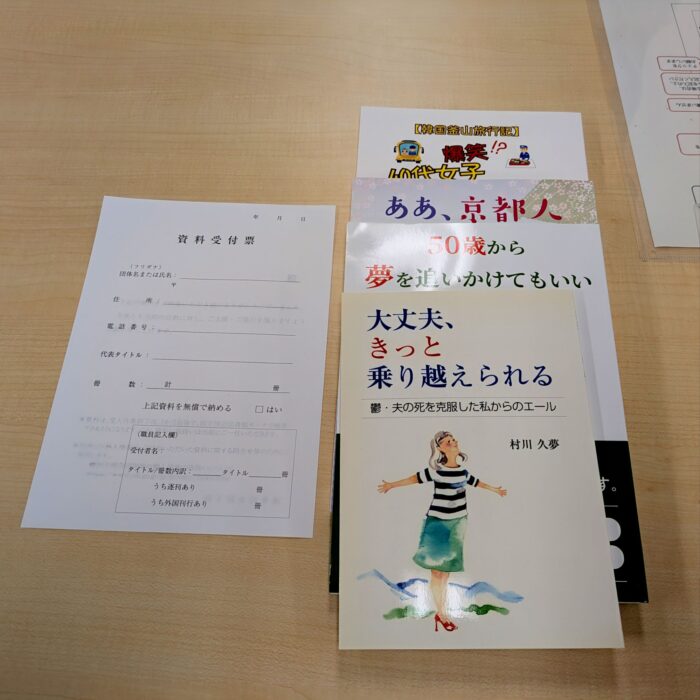 年　月　日
資料受付票
(フリガナ)
団体名または氏名：
〒
住　所：
電話番号：
代表タイトル：
冊　数：　計　冊
上記資料を無償で納める　□はい
(職員記入欄)
受付者名：
タイトル/冊数内訳：　タイトル　冊
うち逐刊あり　冊
うち外国刊行あり　冊
【韓国釜山旅行記】
爆笑!?
40代女子
ああ、京都人
50歳から
夢を追いかけてもいい
大丈夫、
きっと
乗り越えられる
鬱・夫の死を克服した私からのエール
村川 久夢
す。